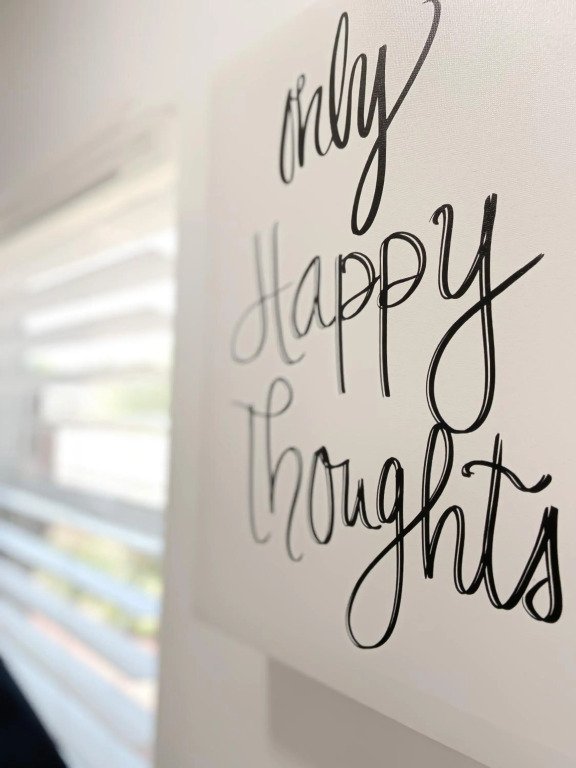 only
Happy
Thoughts